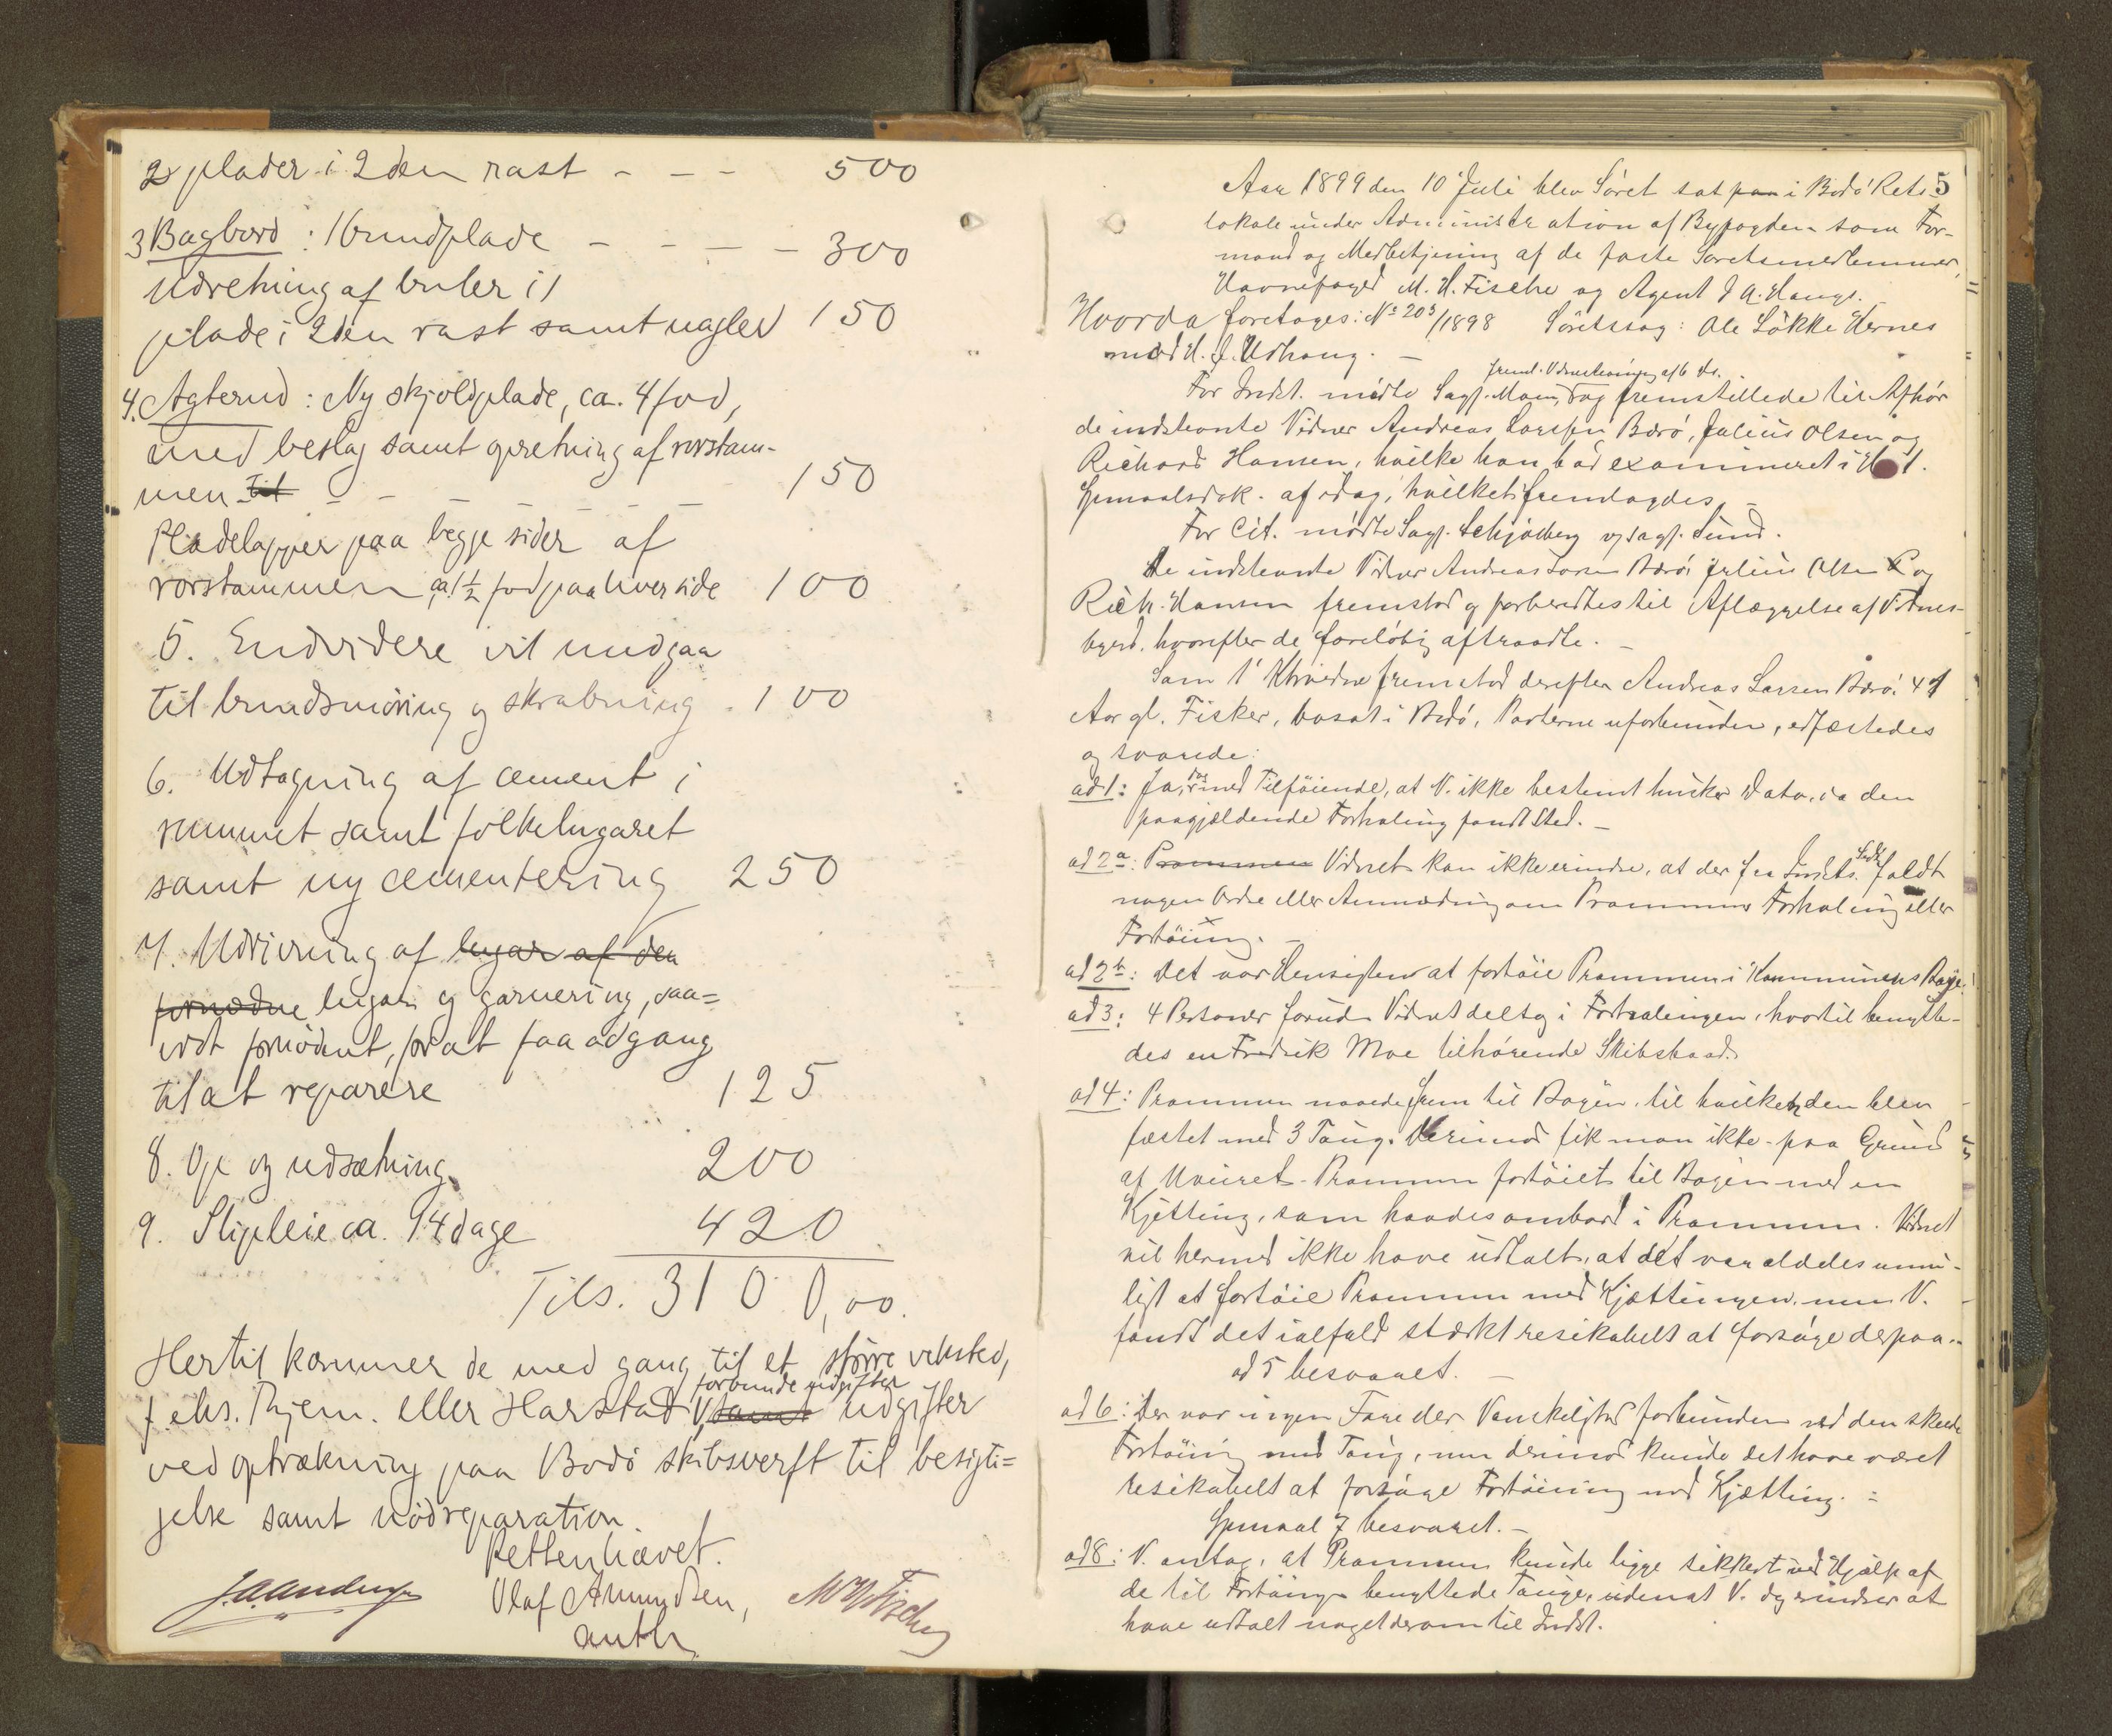 2 plader i 2den rast - - - 500
3 Bagbord: 1 bundplade - - - - 300
Udretning af buler i 1
plade i 2den rast samt nagler 150
4. Agterud: Ny skjoldplade, ca. 4 fod,
med beslag samt opretning af rorstam-
men Til - - - - - - 150
Pladelapper paa begge sider af
rorstammen ca. 1½ fod paa hver side 100
5. Endvidere vil medgaa
til bundsmöring og skrabning. 100
6. Udtagning af cement i
rummet samt folkelugaret
samt ny cementering 250
7. Udrivning af lugar af den
fornødne lugar og garnering, saa=
vidt fornödent, for at faa adgang
til at reparere 125
8. Op og udsætning. 200
9. Slipleie ca. 14 dage 420
Tils. 3100,00.
Hertil kommer de med gang til et större verksted,
f. eks. Thjem. eller Harstad forbundne udgifter, samt udgifter
ved optrækning paa Bodö skibsverft til besigti=
gelse samt nödreparation.
Retten hævet.
Olaf Amundsen, M H Fischer
auth
5
Aar 1899 den 10 Juli blev Söret sat paa i Bodö Rets
lokale under Administration af Byfogden som For-
mand og Medbetjening af de faste Söretsmedlemmer,
Havnefoged M. H. Fischer og Agent J A. Hauge.
Hvorda foretoges: No 203/1898 Söretssag: Ole Lökke Hernes
mod H. J. Udhaug. -
For Indst. mödte Sagf. Moen, freml. Vidnestevning af 6 ds. og fremstillede til Afhör
de indstevnte Vidner Andreas Larssen Barö, Julius Olsen og
Richard Hansen, hvilke han bad examineret i
Spmaalsdok. af idag, hvilket fremlagdes. -
For Cit. mödte Sagf. Schjölberg v/ Sagf. Sund.
De indstevnte Vidner Andreas Larsen Barö, Julius Olsen og
Rich. Hansen fremstod og forberedtes til Aflæggelse af Vidnes-
byrd, hvorefter de foreløbig aftraadte. -
Som 1' Vidne fremstod derefter Andreas Larsen Barö. 47
Aar gl. Fisker, bosat i Bodö, Parterne uforbunden, edfæstedes
og svarede:
ad 1: Ja, med Tilföiende, at V. ikke bestemt husker Dato, da den
paagjældende Forhaling fandt Sted. -
ad 2a: Prammen Vidnet kan ikke erindre, at der fra Indsts. Side faldt
nogen Ordre eller Anmodning om Prammens Forhaling eller
Fortöining. -
ad 2b: Det var Hensigten at fortöie Prammen i Kommunens Böye.
ad 3: 4 Personer foruden Vidnet deltog i Forhalingen, hvortil benytte-
des en Fredrik Moe tilhörende Skibsbaad.
ad 4: Prammen naaede frem til Bøyen, til hvilken den blev
fæstet med 3 Taug. Derimod fik man ikke - paa Grund
af Uveiret - Prammen fortöiet til Bøyen med en
Kjetting, som havdes ombord i Prammen. Vidnet
vil hermed ikke have udtalt, at det var aldeles umu-
ligt at fortöie Prammen med Kjættingen, men V.
fandt det ialfald stærkt resikabelt at forsöge derpaa. -
ad 5 besvaret. -
ad 6: Der var ingen Fare eller Vanskelighed forbunden ved den skeede
Fortöining med Taug, men derimod kunde det have været
resikabelt at forsöge Fortöining med Kjætting. -
Spmaal 7 besvaret. -
ad 8: V. antog, at Prammen kunde ligge sikkert ved Hjælp af
de til Fortöining benyttede Tauge, uden at V. dog erindrer at
have udtalt noget derom til Indst.